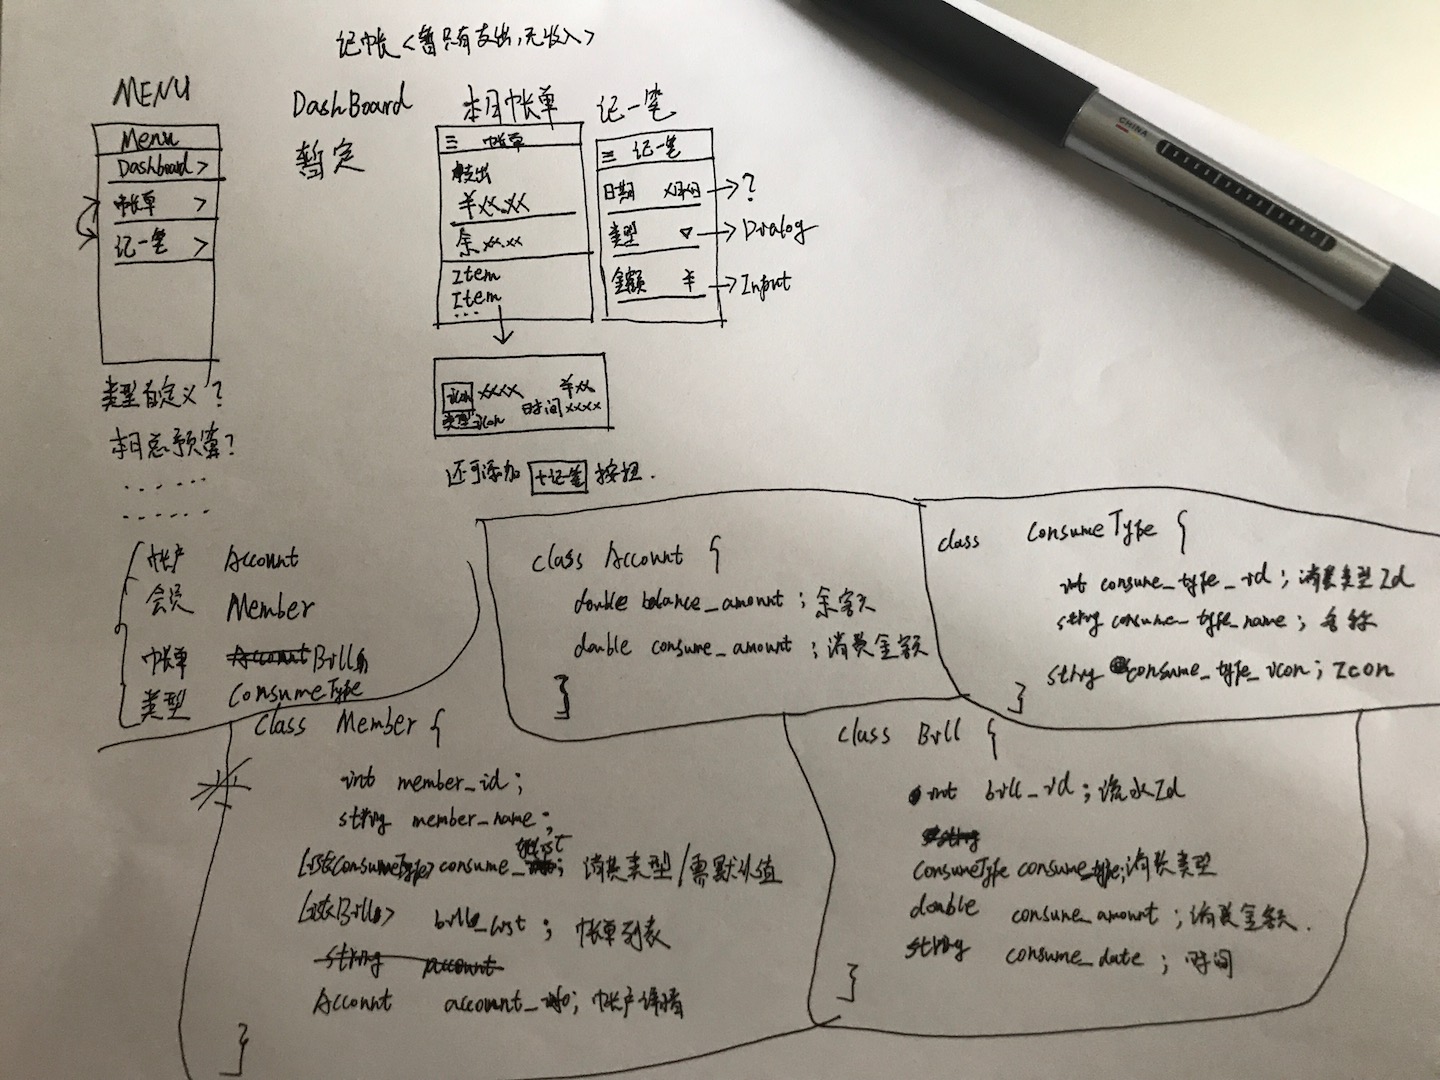 记帐<暂只有支出,无收入>
MENU
Menu
Dashboard >
帐单 >
记一笔 >
DashBoard
暂定
本月帐单
☰ 帐单
支出
¥xx.xx
余xx.xx
Item
Item
...
记一笔
☰ 记一笔
日期 x月x日 → ?
类型 ▽ → Dialog
金额 ¥ → Input
icon xxxx ¥xx
类型icon 时间xxxx
还可添加 +记一笔 按钮.
类型自定义?
本月总预算?
......
......
帐户 Account
会员 Member
帐单 Account Bill
类型 ConsumeType
class Account {
double balance_amount; 余额
double consume_amount; 消费金额
}
class ConsumeType {
int consume_type_id; 消费类型Id
string consume_type_name; 名称
string consume_type_icon; Icon
}
class Member {
int member_id;
string member_name;
List<ConsumeType> consume_list; 消费类型/需默认值
List<Bill> bill_list; 帐单列表
string account
Account account_info; 帐户详情
}
class Bill {
int bill_id; 流水Id
string
ConsumeType consume_type; 消费类型
double consume_amount; 消费金额.
string consume_date; 时间
}
CHINA